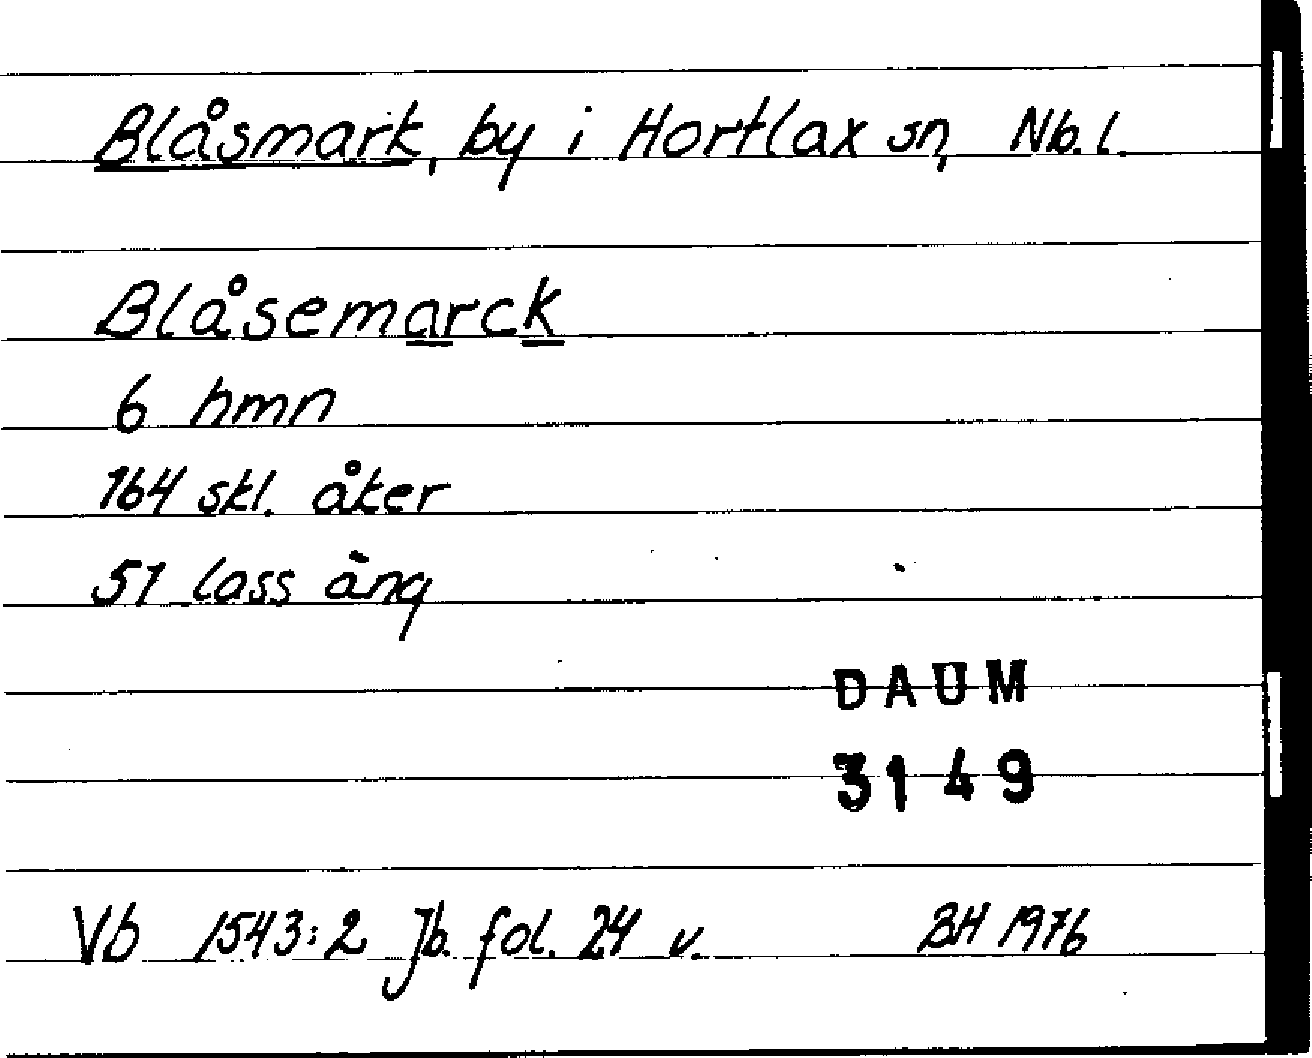 Blåsmark, by i Hortlax sn, Nb. l.
Blåsemarck
6 hmn
164 skl. åker
51 lass äng
DAUM
3149
Vb 1543:2 Jb. fol. 24 v. BH 1976